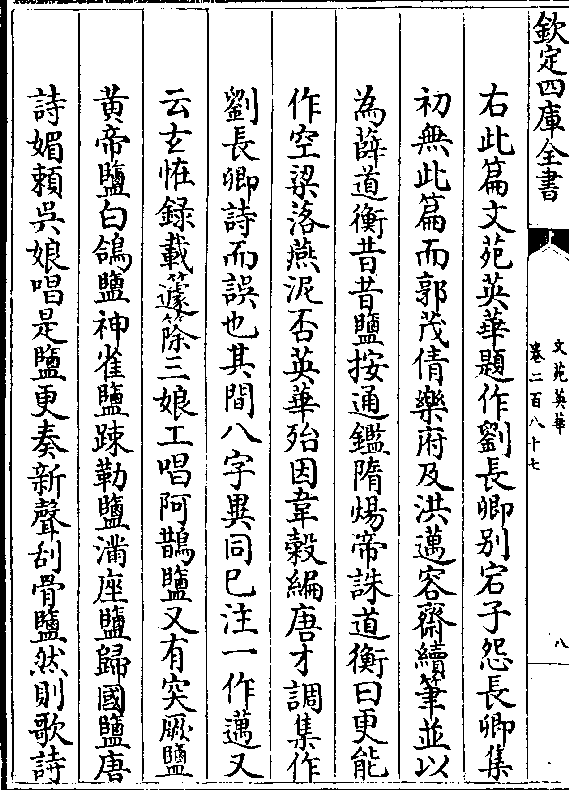 欽定四庫全書
文苑英華
卷二百八十七
八
右此篇文苑英華題作劉長卿别宕子怨長卿集
初無此篇而郭茂倩樂府及洪邁容齋續筆並以
為薛道衡昔昔鹽按通鑑隋煬帝誅道衡曰更能
作空梁落燕泥否英華殆因韋縠編唐才調集作
劉長卿詩而誤也其間八字異同已注一作邁又
云玄怪録載籧篨三娘工唱阿鵲鹽又有突厥鹽
黄帝鹽白鴿鹽神雀鹽踈勒鹽滿座鹽歸國鹽唐
詩媚頼吳娘唱是鹽更奏新聲刮骨鹽然則歌詩